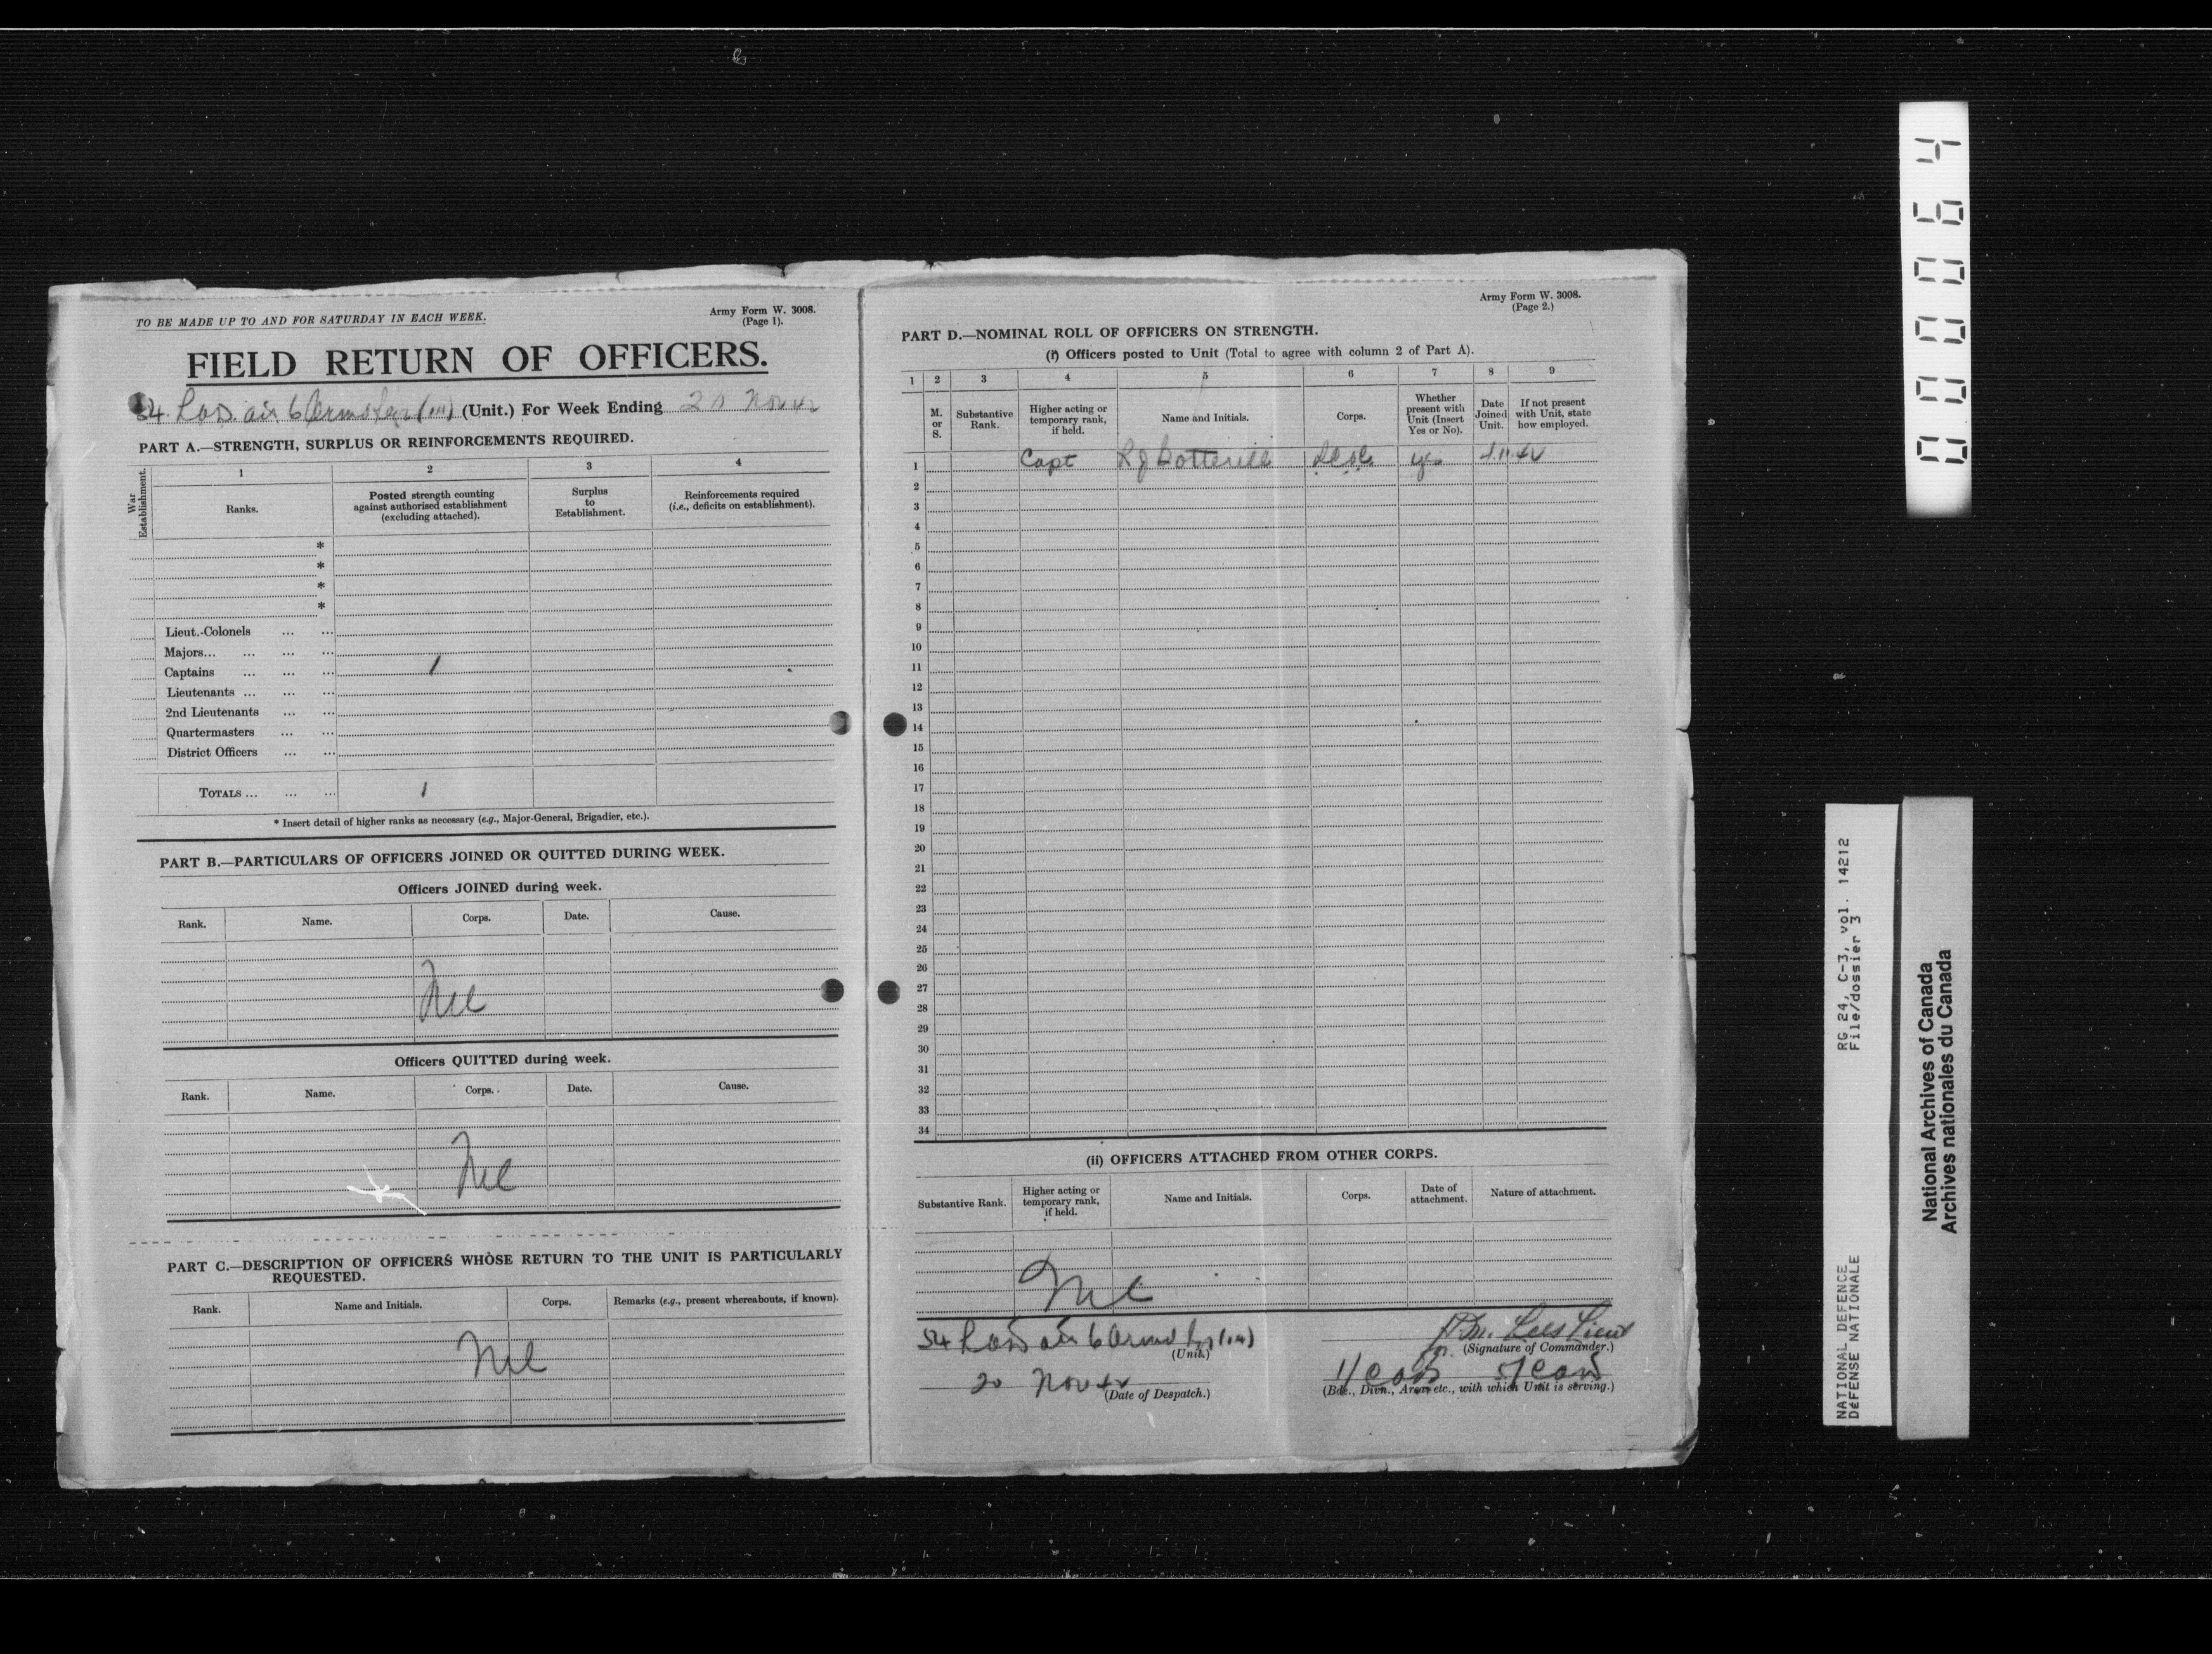 TO BE MADE UP TO AND FOR SATURDAY IN EACH WEEK.
Army Form W. 3008.
(Page 1).
FIELD RETURN OF OFFICERS.
54 (Unit.) For Week Ending 20 Nov 42
PART A.—STRENGTH, SURPLUS OR REINFORCEMENTS REQUIRED.
War Establishment.
1 2 3 4
Ranks.
Posted strength counting against authorised establishment (excluding attached).
Surplus to Establishment.
Reinforcements required (i.e., deficits on establishment).
*
*
*
*
Lieut.-Colonels ... ...
Majors... ... ... ...
Captains ... ... ... 1
Lieutenants ... ... ...
2nd Lieutenants ... ...
Quartermasters ... ...
District Officers ... ...
TOTALS ... ... ... 1
* Insert detail of higher ranks as necessary (e.g., Major-General, Brigadier, etc.).
PART B.—PARTICULARS OF OFFICERS JOINED OR QUITTED DURING WEEK.
Officers JOINED during week.
Rank. Name. Corps. Date. Cause.
Nil
Officers QUITTED during week.
Rank. Name. Corps. Date. Cause.
Nil
PART C.—DESCRIPTION OF OFFICERS WHOSE RETURN TO THE UNIT IS PARTICULARLY
REQUESTED.
Rank. Name and Initials. Corps. Remarks (e.g., present whereabouts, if known).
Nil
Army Form W. 3008.
(Page 2.)
PART D.—NOMINAL ROLL OF OFFICERS ON STRENGTH.
(i) Officers posted to Unit (Total to agree with column 2 of Part A).
1 2 3 4 5 6 7 8 9
M. or S.
Substantive Rank.
Higher acting or temporary rank, if held.
Name and Initials.
Corps.
Whether present with Unit (Insert Yes or No).
Date Joined Unit.
If not present with Unit, state how employed.
1 Capt Botterill yes
2
3
4
5
6
7
8
9
10
11
12
13
14
15
16
17
18
19
20
21
22
23
24
25
26
27
28
29
30
31
32
33
34
(ii) OFFICERS ATTACHED FROM OTHER CORPS.
Substantive Rank.
Higher acting or temporary rank, if held.
Name and Initials.
Corps.
Date of attachment.
Nature of attachment.
Nil
54
(Unit.)
20 Nov 42
(Date of Despatch.)
Lees Lieut
for (Signature of Commander.)
(Bde., Divn., Area, etc., with which Unit is serving.)
000064
RG 24, C-3, vol. 14212
File/dossier 3
NATIONAL DEFENCE
DÉFENSE NATIONALE
National Archives of Canada
Archives nationales du Canada